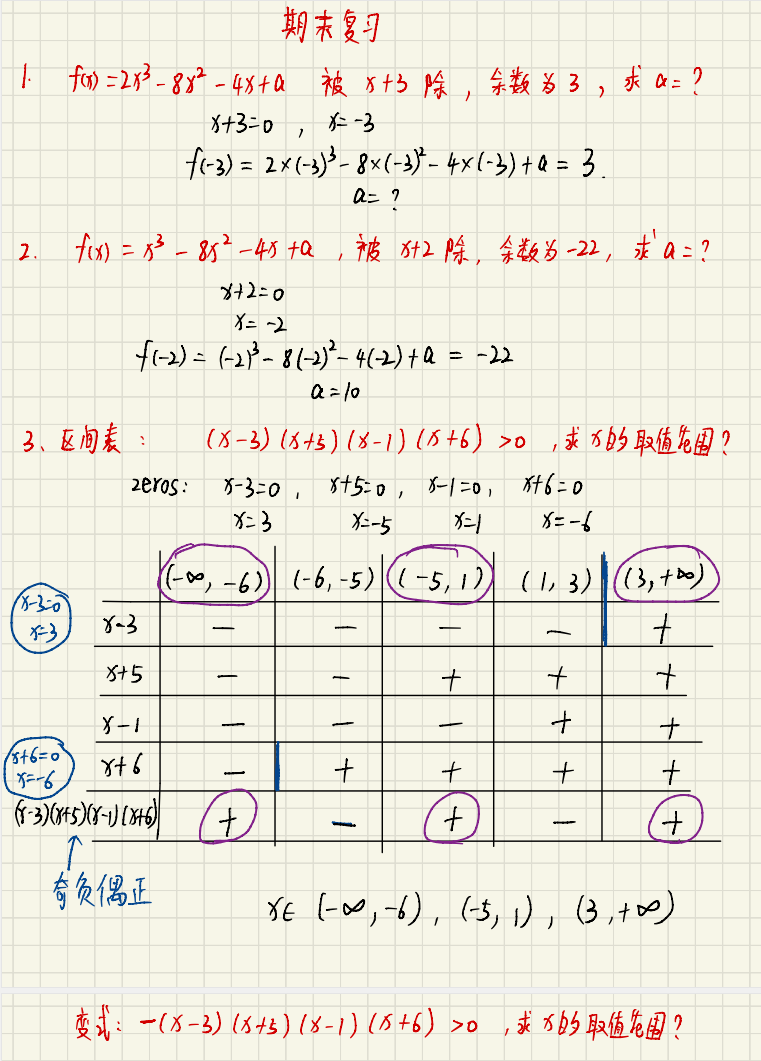 期末复习
1. f(x)=2x³-8x²-4x+a 被 x+3 除，余数为3，求 a=？
x+3=0，x=-3
f(-3)=2×(-3)³-8×(-3)²-4×(-3)+a=3.
a=？
2. f(x)=x³-8x²-4x+a，被 x+2 除，余数为-22，求 a=？
x+2=0
x=-2
f(-2)=(-2)³-8(-2)²-4(-2)+a=-22
a=10
3、区间表：(x-3)(x+5)(x-1)(x+6)>0，求x的取值范围？
zeros: x-3=0，x+5=0，x-1=0，x+6=0
x=3 x=-5 x=1 x=-6
(-∞,-6) (-6,-5) (-5,1) (1,3) (3,+∞)
x-3=0
x=3
x-3 - - - - +
x+5 - - + + +
x-1 - - - + +
x+6=0
x=-6
x+6 - + + + +
(x-3)(x+5)(x-1)(x+6) + - + - +
奇负偶正
x∈(-∞,-6)，(-5,1)，(3,+∞)
变式：-(x-3)(x+5)(x-1)(x+6)>0，求x的取值范围？